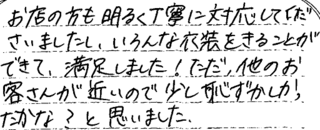 お店の方も明るく丁寧に対応してくだ
さいましたし、いろんな衣装をきることが
できて、満足しました！ただ、他のお
客さんが近いので少し恥ずかしかっ
たかな？と思いました。